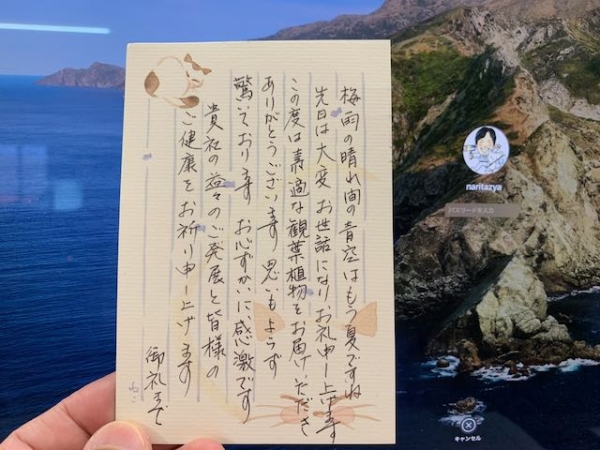 梅雨の晴れ間の青空はもう夏ですね
先日は大変 お世話になり、お礼申し上げます
この度は素適な観葉植物をお届けいただき
ありがとうございます 思いもよらず
驚いております お心ずかいに、感激です
貴社の益々のご発展と皆様の
ご健康をお祈り申し上げます
御礼まで
naritazya
パスワードを入力
キャンセル